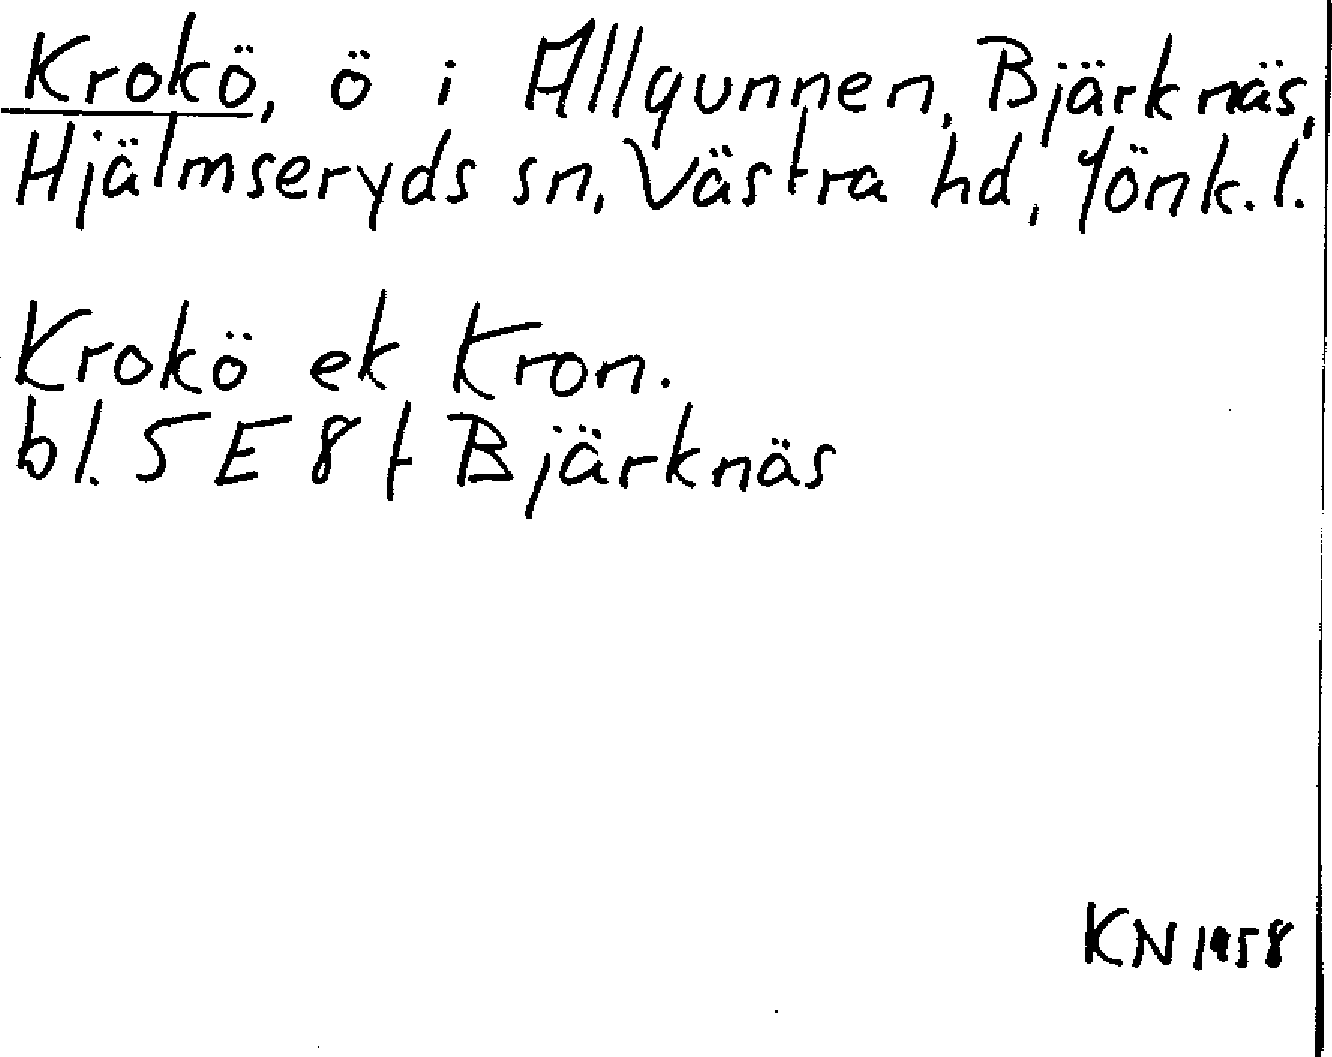 Krokö, ö i Allgunnen, Bjärknäs,
Hjälmseryds sn, Västra hd, Jönk. l.
Krokö ek Kron.
bl. 5 E 8 f Bjärknäs
KN 1958